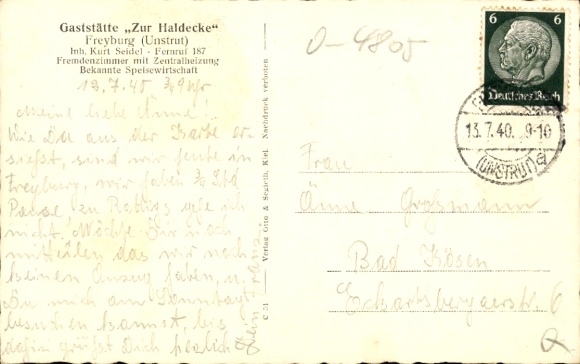 Gaststätte „Zur Haldecke"
Freyburg (Unstrut)
Inh. Kurt Seidel - Fernruf 187
Fremdenzimmer mit Zentralheizung
Bekannte Speisewirtschaft
13.7.40 ¾9 Uhr
Meine liebe Änne!
Wie Du aus der Karte er-
siehst, sind wir heute in
Freyburg, wir haben ¾ Std
Pause, zu
nicht. Möchte Dir noch
mitteilen das wir noch
keinen Anzug haben, u.
Du mich am Sonntag
besuchen kannst, bis
dahin grüßt Dich herzlich
Dein
C 51
Verlag Otto & Kiel. Nachdruck verboten
0-4805
6 6
Deutsches Reich
13.7.40. 9-10
(UNSTRUT)
Frau
Änne Großmann
Bad Kösen
Eckartsbergaerstr. 6